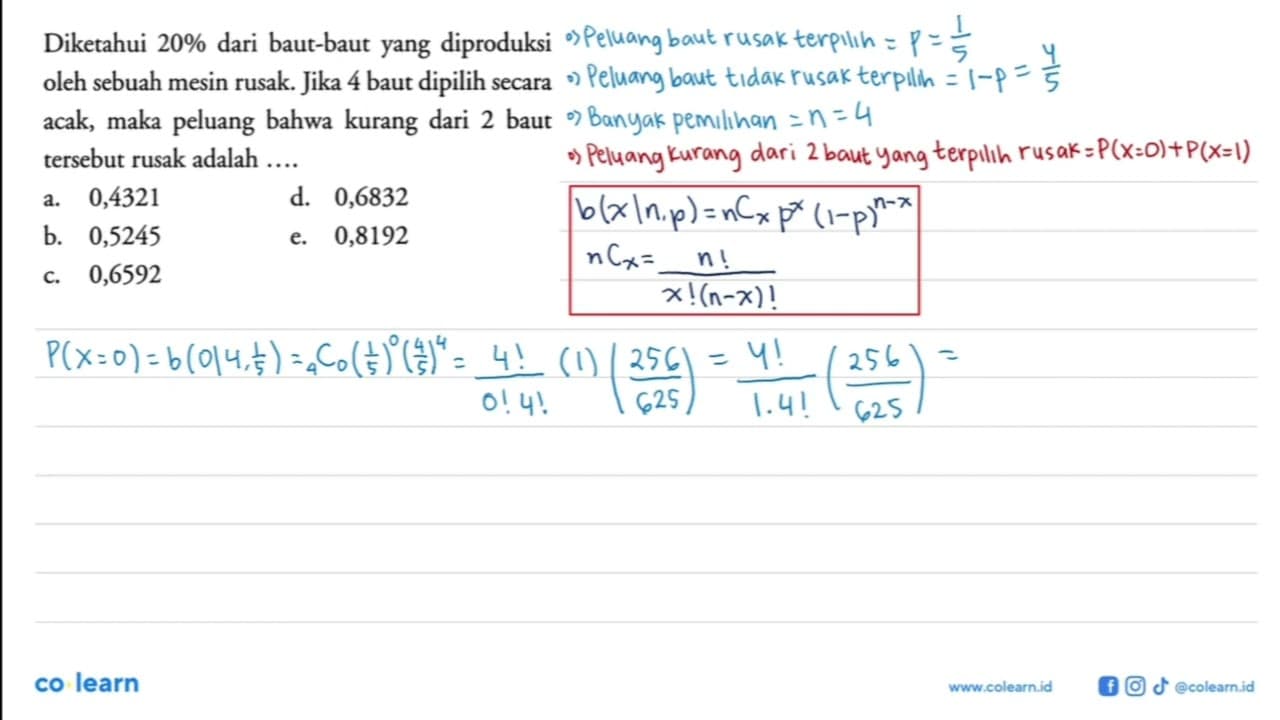 Diketahui 20% dari baut-baut yang diproduksi
oleh sebuah mesin rusak. Jika 4 baut dipilih secara
acak, maka peluang bahwa kurang dari 2 baut
tersebut rusak adalah ....
a. 0,4321 d. 0,6832
b. 0,5245 e. 0,8192
c. 0,6592
°) Peluang baut rusak terpilih = p = 1/5
°) Peluang baut tidak rusak terpilih = 1-p = 4/5
°) Banyak pemilihan = n = 4
°) Peluang kurang dari 2 baut yang terpilih rusak = P(x=0)+P(x=1)
b(x|n,p) = nCx p^x (1-p)^(n-x)
nCx = n!/(x!(n-x)!)
P(x=0) = b(0|4,1/5) = ₄C₀(1/5)^0(4/5)^4 = 4!/(0!4!) (1) (256/625) = 4!/(1.4!) (256/625) =
co learn
www.colearn.id
@colearn.id